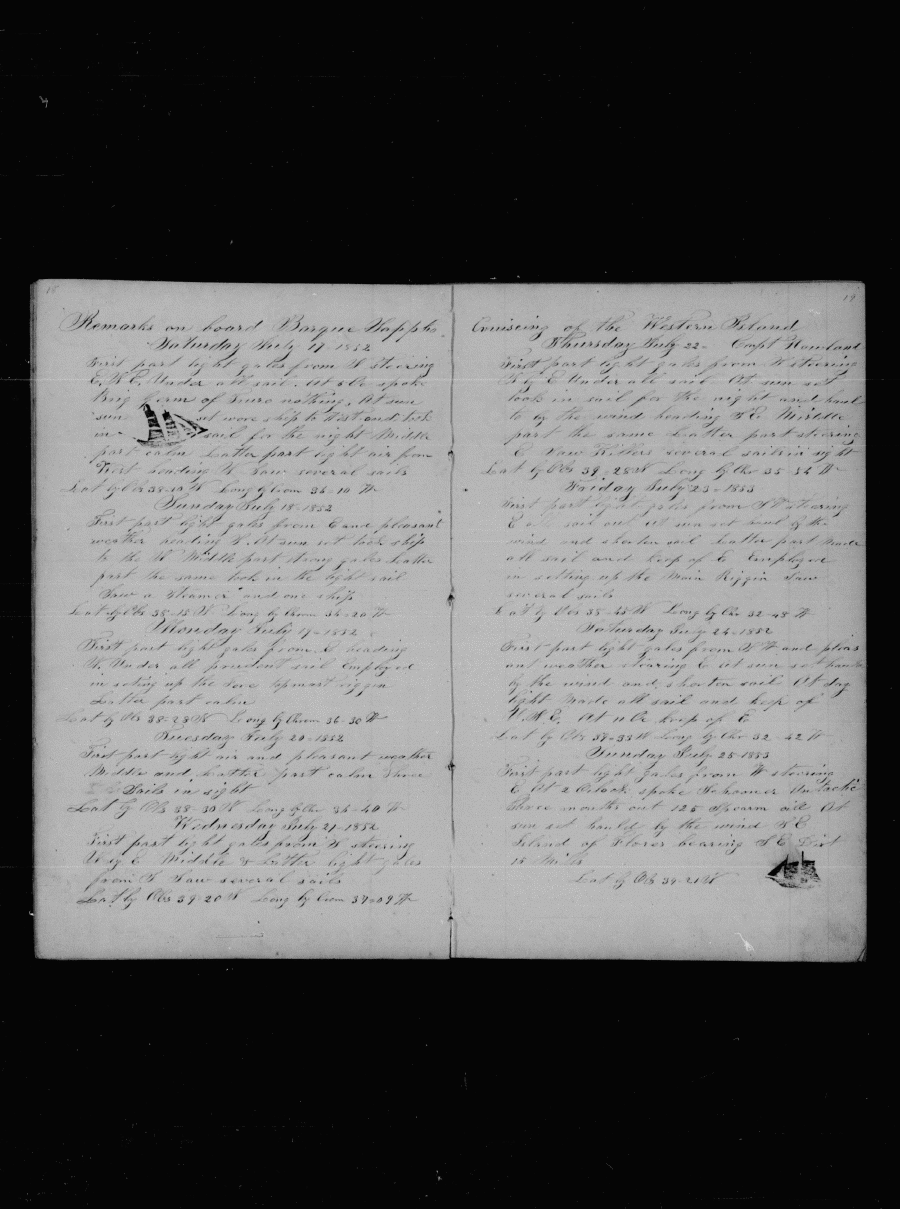 18
Remarks on board Barque Sappho
Saturday July 17 - 1852
First part light gales from S steering
E. N. E. Under all sail. At 5 Oc spoke
Brig Germ of Truro nothing. At sun
sun set wore ship to West and took
in sail for the night Middle
part calm Latter part light air from
West heading N. Saw several sails
Lat by Obs 38-10 N Long by Crom 36-10 W
Sunday July 18 - 1852
First part light gales from E and pleasant
weather heading N. At sun set took ship
to the Middle part strong gales Latter
part the same took in the light sail
Saw a Steamer and one ship
Lat by Obs 38-15 N Long by Chrom 36-20 W
Monday July 19 - 1852
First part light gales from heading
N. Under all prudent sail Employed
in seting up the fore topmast riggin
Latter part calm
Lat by Obs 38-28 N Long by Chrom 36-30 W
Tuesday July 20 - 1852
First part light air and pleasant weather
Middle and Latter part calm Three
Sails in sight
Lat by Obs 38-30 N Long by Chr 36-40 W
Wednesday July 21 - 1852
First part light gales from W steering
N by E Middle & Latter light gales
from S Saw several sails
Lat by Obs 39-20 N Long by Crom 37-09 W
19
Cruiseing of the Western Island
Thursday July 22 - Capt Howland
First part light gales from W steering
N by E Under all sail At sun set
took in sail for the night and haul
to by the wind heading S E. Middle
part the same Latter part steering
E Saw Killers several sails in sight
Lat by Obs 39-28 N Long by Chr 35-54 W
Friday July 23 - 1853
First part light gales from S W steering
E all sail out at sun set haul by the
wind and shorten sail Latter part Made
all sail and keep of E Employed
in setting up the Main Riggin Saw
several sails
Lat by Obs 38-45 N Long by Chr 32-48 W
Saturday July 24 - 1852
First part light gales from N W and pleas
ant weather stearing E at sun set hauld
by the wind and shorten sail At day
light Made all sail and keep of
N. N. E. At 11 Oc keep of E
Lat by Obs 39-33 N Long by Chr 32-42 W
Sunday July 25 - 1853
First part light gales from W steering
E At 2 Oclock spoke Schooner
three months out 125 Spearm oill At
sun set hauld by the wind N E
Island of Flores bearing S E Dist
15 Miles
Lat by Obs 39-21 N